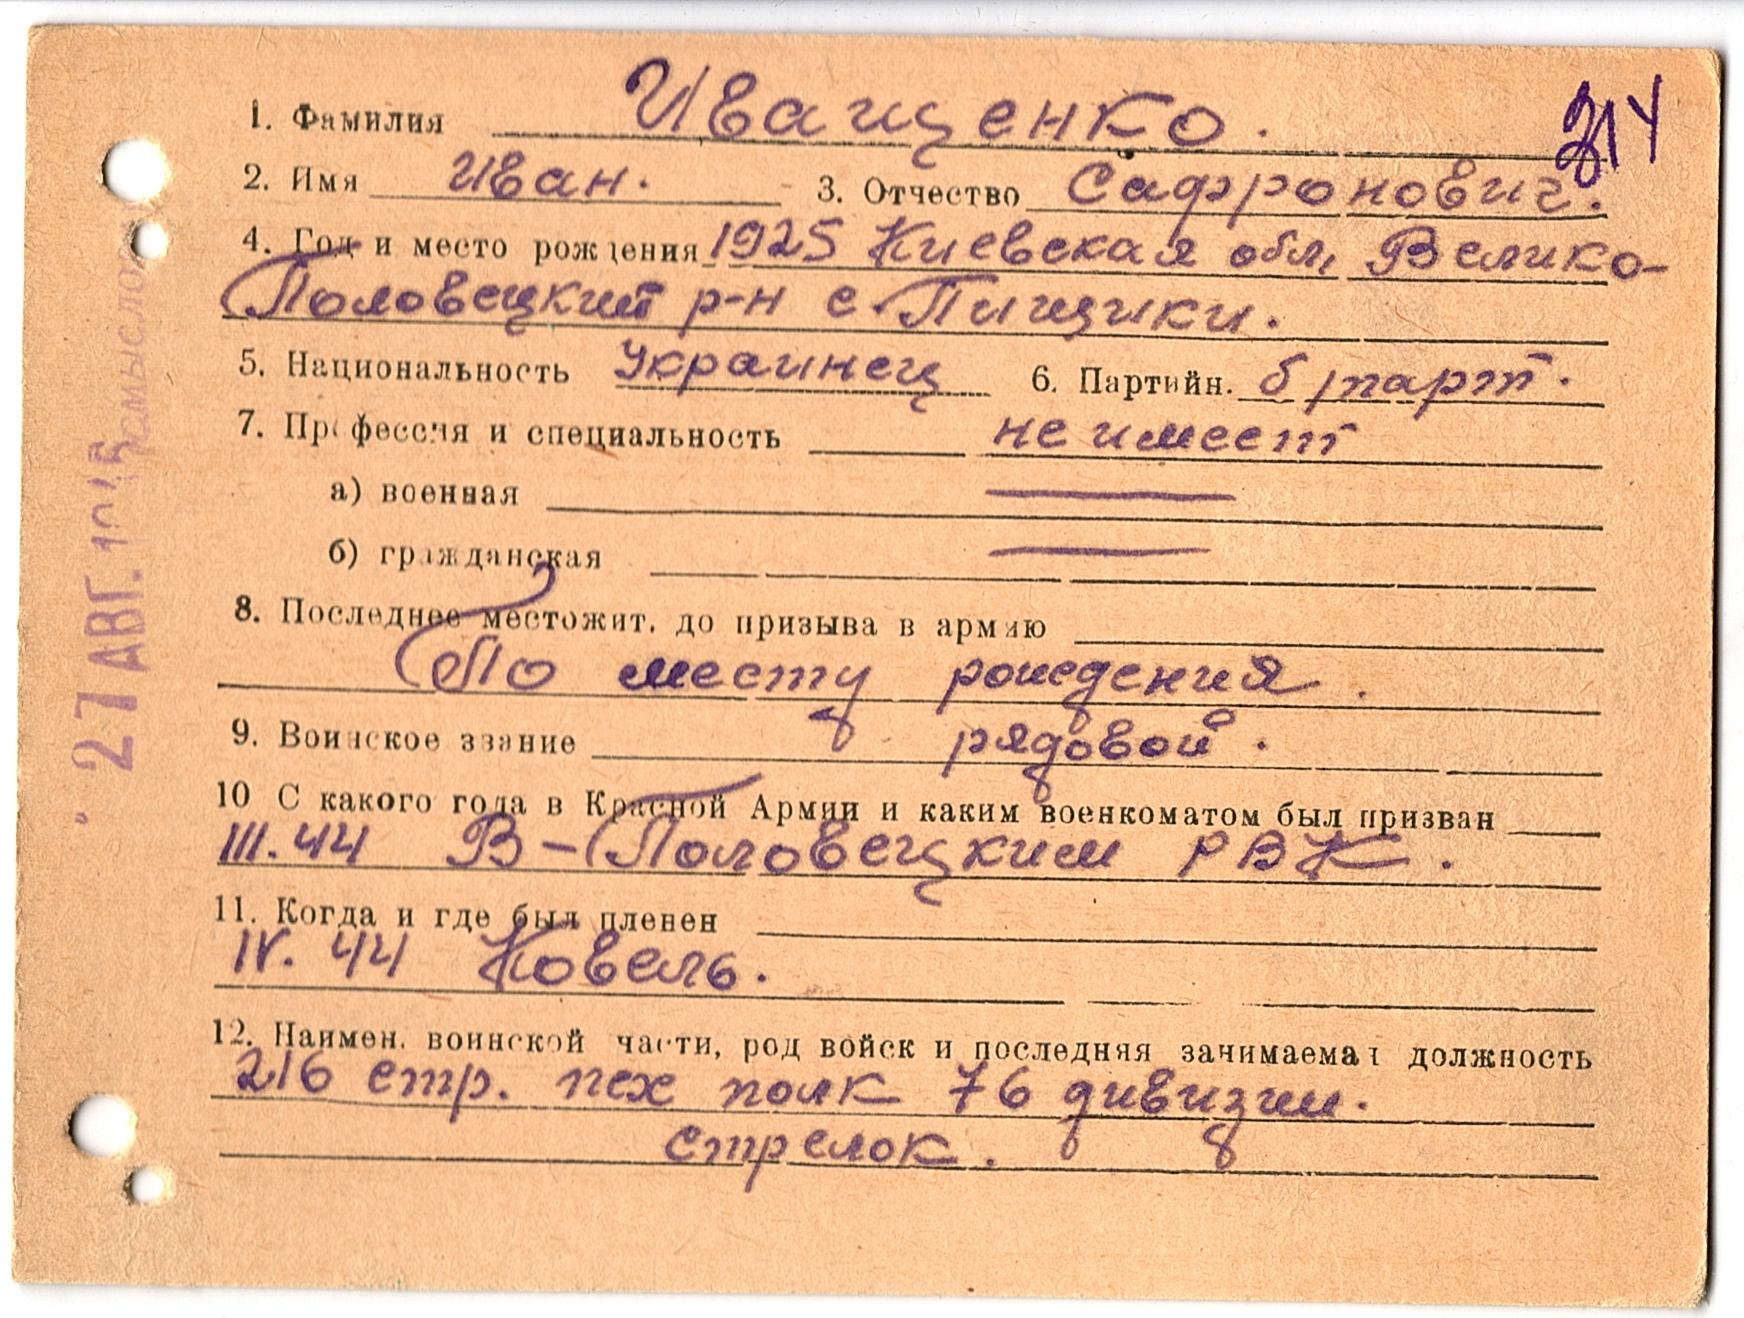 1. Фамилия Иващенко.
314
2. Имя Иван. 3. Отчество Сафронович.
4. Год и место рождения 1925 Киевская обл, Велико-
Половецкий р-н с. Пищики.
5. Национальность Украинец 6. Партийн. б/парт.
7. Профессия и специальность не имеет
а) военная
б) гражданская
8. Последнее местожит. до призыва в армию
По месту рождения.
9. Воинское звание рядовой.
10 С какого года в Красной Армии и каким военкоматом был призван
III.44 В-Половецким РВК.
11. Когда и где был пленен
IV. 44 Ковель.
12. Наимен. воинской части, род войск и последняя занимаемая должность
216 стр. пех полк 76 дивизии.
стрелок.
27 АВГ. 1945